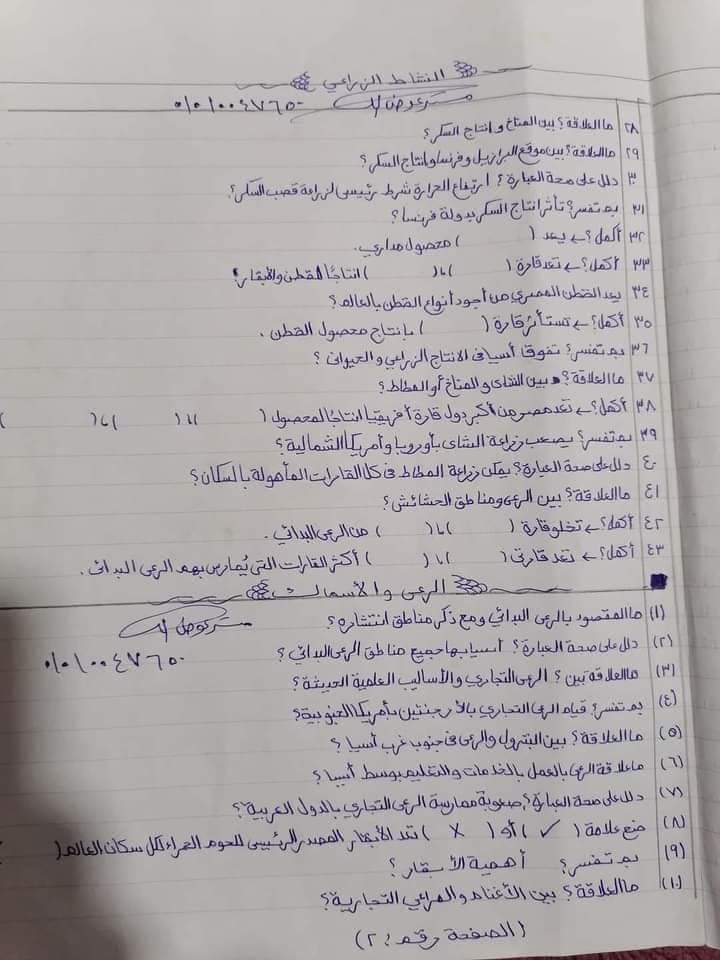 النشاط الزراعي
مستر عوض ٠١٠١٠٠٤٧٦٥٠
٢٨ ما العلاقة؟ بين المناخ وإنتاج السكر؟
٢٩ ما العلاقة؟ بين موقع البرازيل وفرنسا وإنتاج السكر؟
٣٠ دلل على صحة العبارة؟ ارتفاع الحرارة شرط رئيسى لزراعة قصب السكر؟
٣١ بم تفسر؟ تأثر انتاج السكر بدولة فرنسا؟
٣٢ أكمل؟ ← يعد ( ) محصول مدارى.
٣٣ أكمل؟ ← تعد قارة ( )، ( ) انتاجًا للقطن والأبقار؟
٣٤ يعد القطن المصرى من أجود أنواع القطن بالعالم؟
٣٥ أكمل؟ ← تستأثر قارة ( ) بإنتاج محصول القطن.
٣٦ بم تفسر؟ تفوق أسيا فى الانتاج الزراعي والحيوانى؟
٣٧ ما العلاقة؟ بين الشاى والمناخ أو المطاط؟
٣٨ أكمل؟ ← تعد مصر من أكبر دول قارة أفريقيا انتاجًا لمحصول ( )، ( )، ( )
٣٩ بم تفسر؟ يصعب زراعة الشاى بأوروبا وأمريكا الشمالية؟
٤٠ دلل على صحة العبارة؟ يمكن زراعة المطاط فى كل القارات المأهولة بالسكان؟
٤١ ما العلاقة؟ بين الرعى ومناطق الحشائش؟
٤٢ أكمل؟ ← تخلو قارة ( )، ( ) من الرعى البدائي.
٤٣ أكمل؟ ← تعد قارتى ( )، ( ) أكثر القارات التى يُمارس بهم الرعى البدائى.
الرعى والأسماك
مستر عوض
٠١٠١٠٠٤٧٦٥٠
(١) ما المقصود بالرعى البدائي ومع ذكر مناطق انتشاره؟
(٢) دلل على صحة العبارة؟ أسيا بها جميع مناطق الرعى البدائي؟
(٣) ما العلاقة بين؟ الرعى التجارى والأساليب العلمية الحديثة؟
(٤) بم تفسر؟ قيام الرعى التجارى بالأرجنتين بأمريكا الجنوبية؟
(٥) ما العلاقة؟ بين البترول والرعى فى جنوب غرب أسيا؟
(٦) ما علاقة الرعى بالعمل بالخدمات والتعليم بوسط أسيا؟
(٧) دلل على صحة العبارة؟ صعوبة ممارسة الرعى التجارى بالدول العربية؟
(٨) ضع علامة (✓) أو (X) تعد الأبقار المصدر الرئيسى للحوم الحمراء لكل سكان العالم (
(٩) بم تفسر؟ أهمية الأبقار؟
(١٠) ما العلاقة؟ بين الأغنام والمراعي التجارية؟
(الصفحة رقم: ٢)